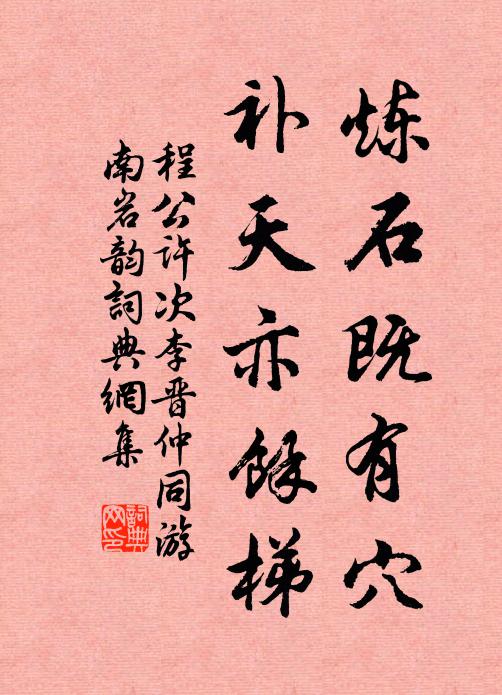 炼石既有穴
补天亦馀梯
程公许次李晋仲同游
南岩韵词典網集
詞典網印